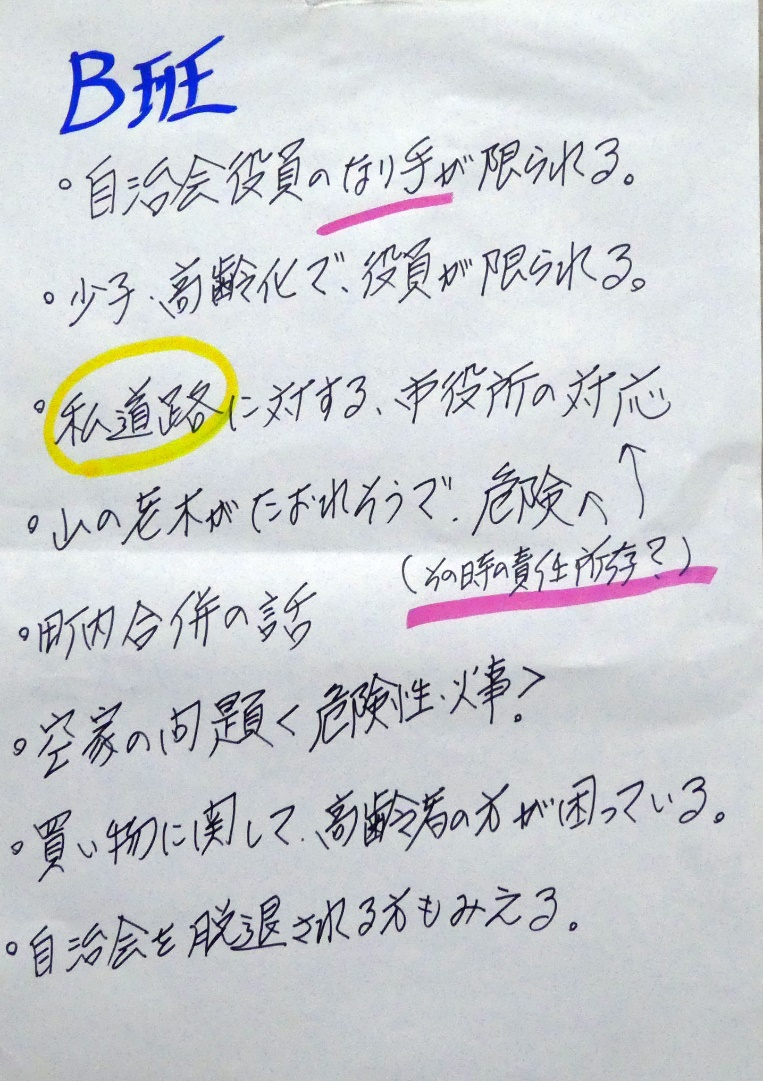 B班
。自治会役員のなり手が限られる。
。少子・高齢化で、役員が限られる。
。私道路に対する、市役所の対応
。山の老木がたおれそうで、危険へ↑
(その時の責任所存?)
。町内合併の話
。空家の問題<危険性・火事?>
。買い物に関して、高齢者の方が困っている。
。自治会を脱退される方もみえる。